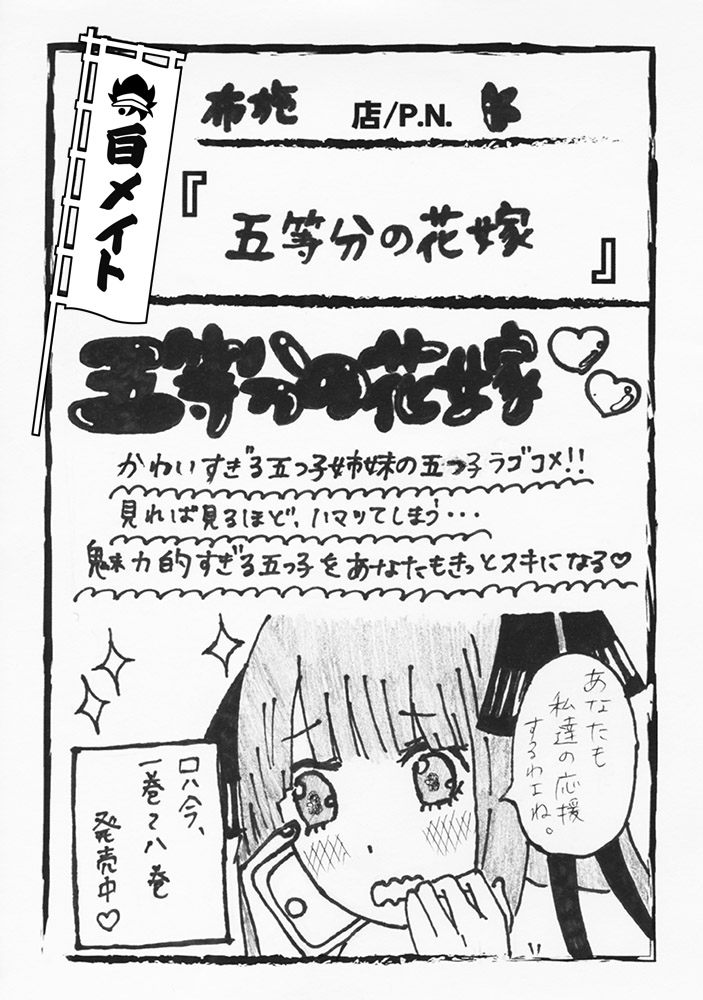 白メイト
布施 店/P.N.
『五等分の花嫁』
五等分の花嫁♡♡
かわいすぎる五つ子姉妹の五つ子ラブコメ!!
見れば見るほど、ハマッてしまう・・・
魅力的すぎる五つ子をあなたもきっとスキになる♡
あなたも
私達の応援
するわよね。
只今、
一巻〜八巻
発売中♡